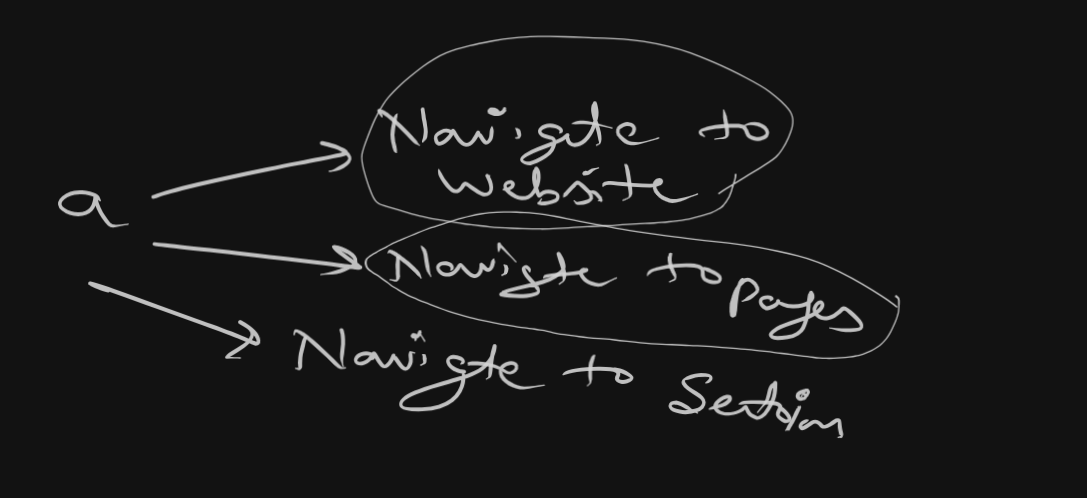 a
Navigate to
website
Navigte to pages
Navigte to Section